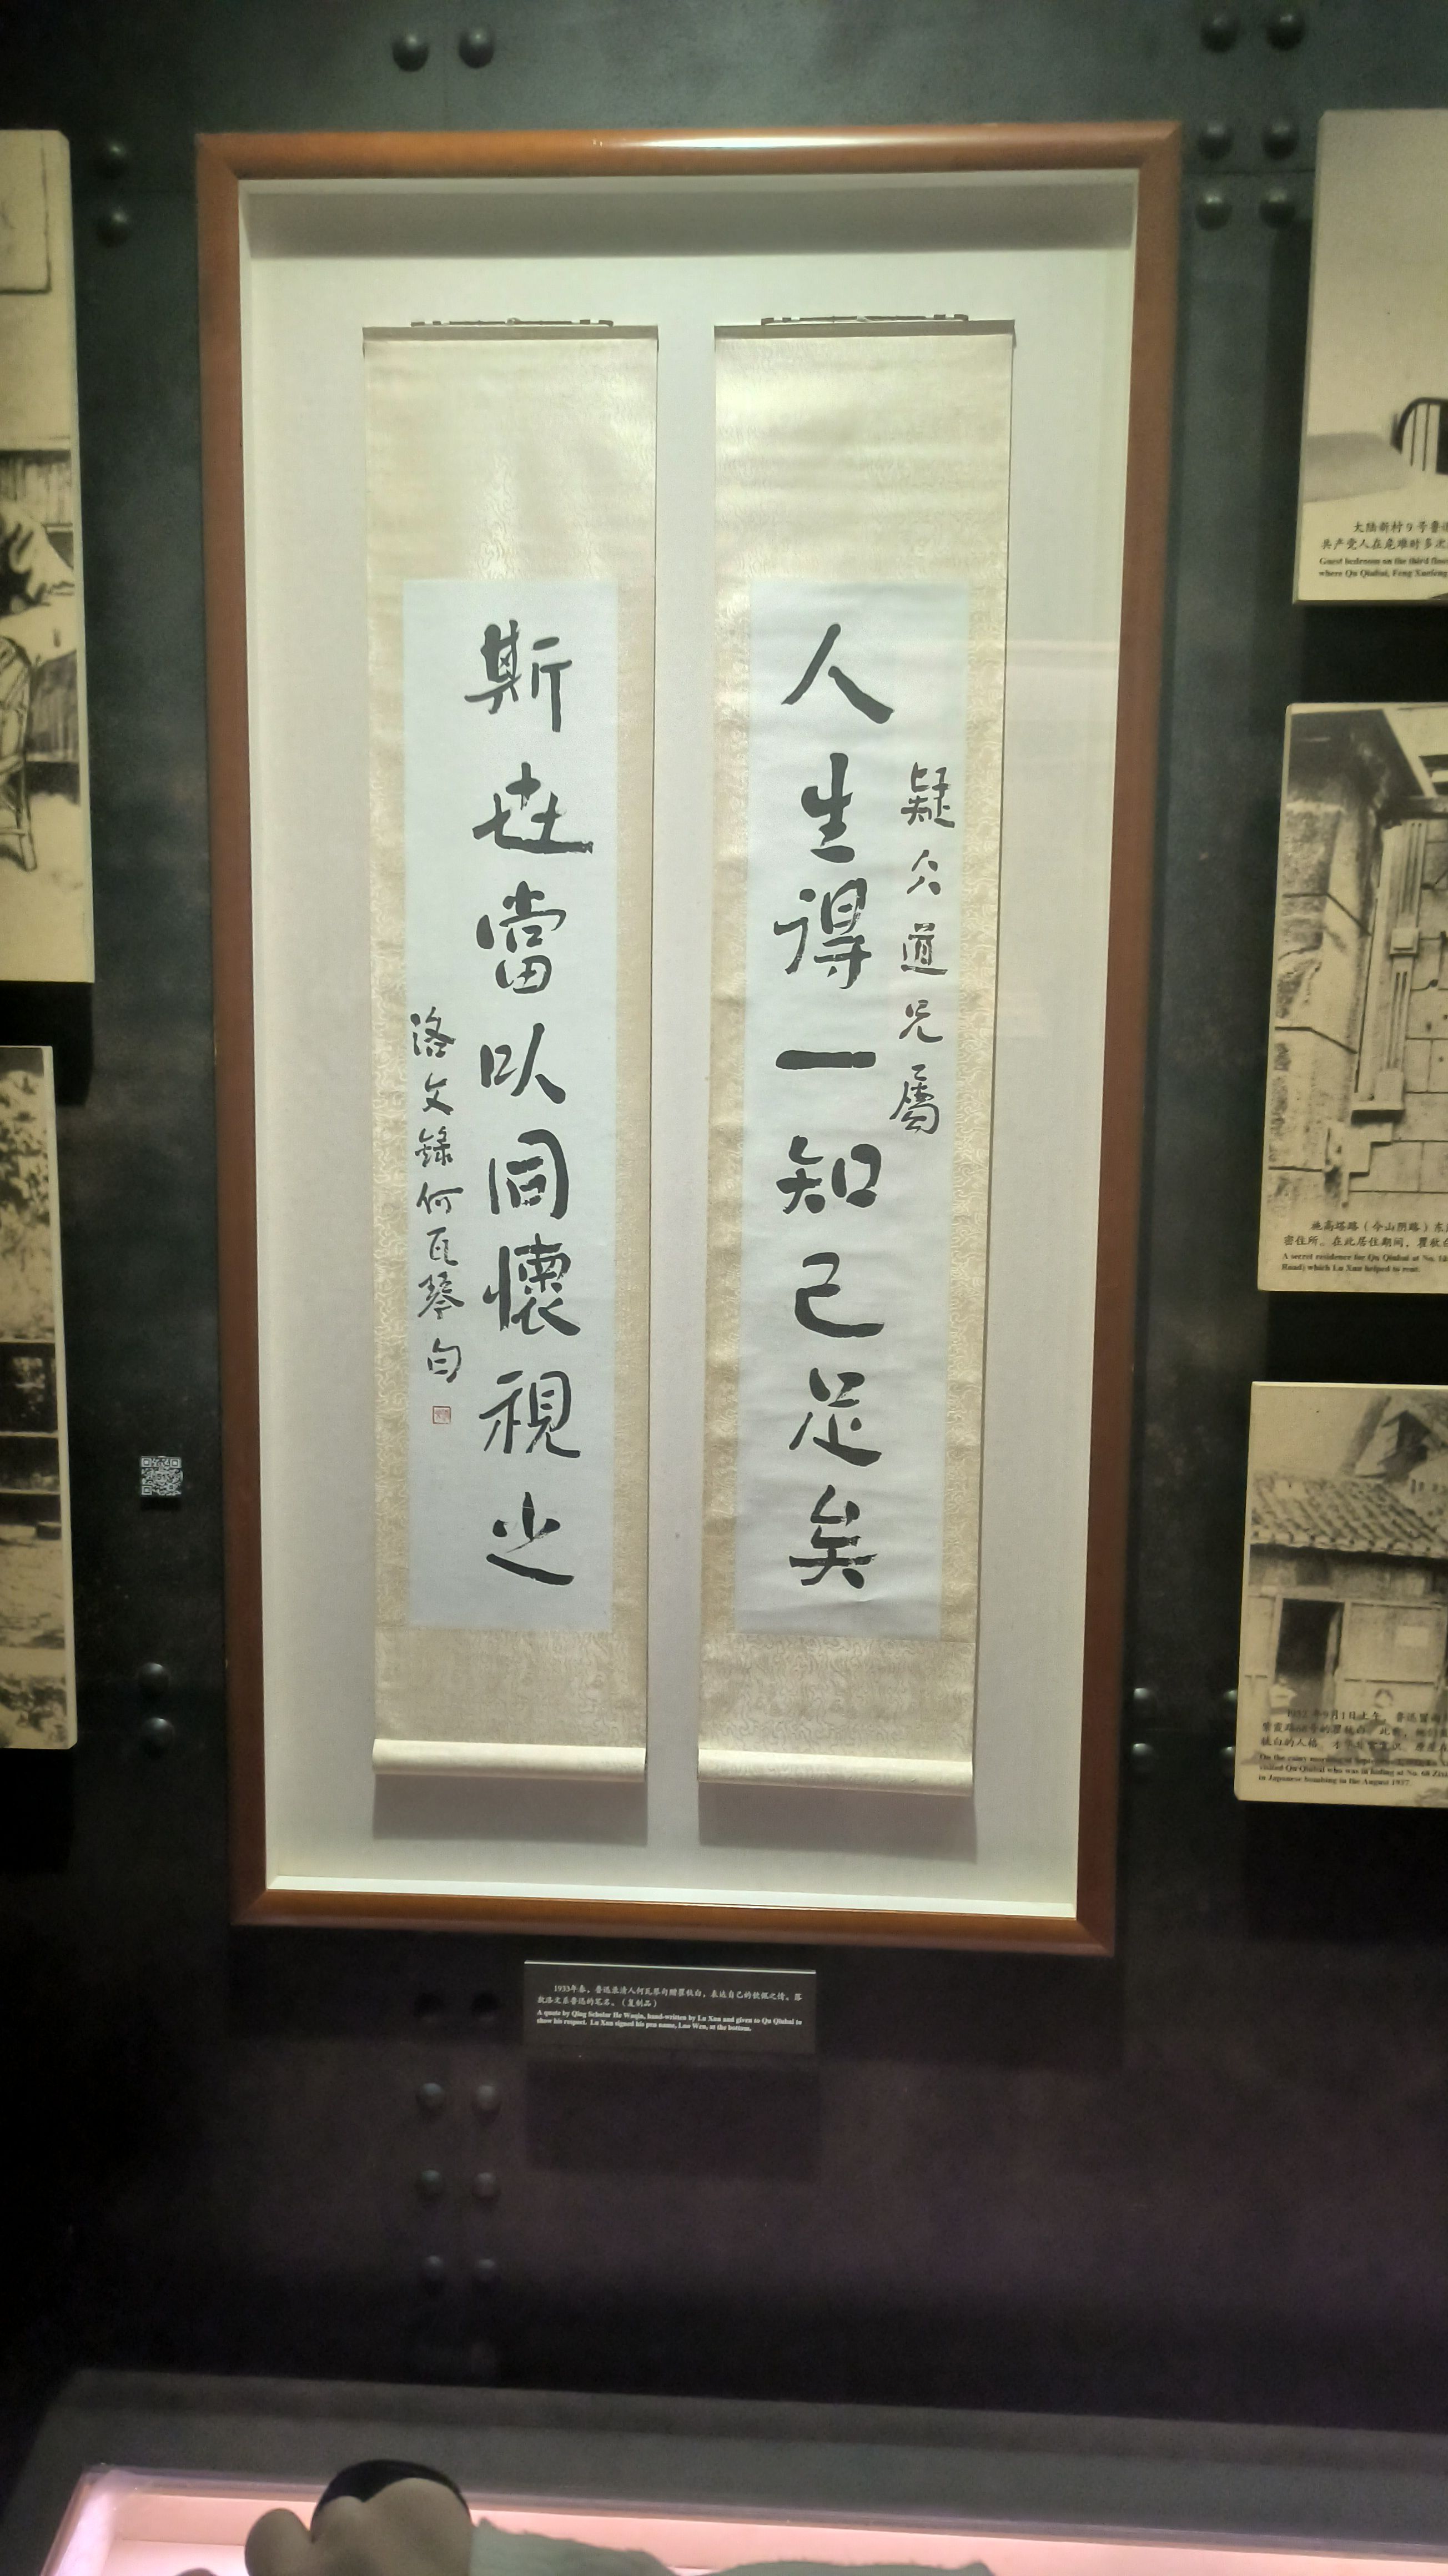 疑仌道兄屬
人生得一知己足矣
斯世當以同懷視之
洛文錄何瓦琴句
1933年春，鲁迅录清人何瓦琴句赠瞿秋白，表达自己的钦佩之情。落
款洛文系鲁迅的笔名。（复制品）
A quote by Qing Scholar He Waqin, hand-written by Lu Xun and given to Qu Qiubai to
show his respect. Lu Xun signed his pen name, Luo Wen, at the bottom.
大陆新村9号鲁
共产党人在危难时多次
Guest bedroom on the third floor
where Qu Qiubai, Feng Xuefeng
施高塔路（今山阴路）东
密住所。在此居住期间，瞿秋白
A secret residence for Qu Qiubai at No.
Road) which Lu Xun helped to rent.
1932年9月1日上午，鲁迅
紫霞路68号的瞿秋白。此
秋白的人格、才
On the rainy morning of
visited Qu Qiubai who was in hiding at No. 68
in Japanese bombing in the August 1937.